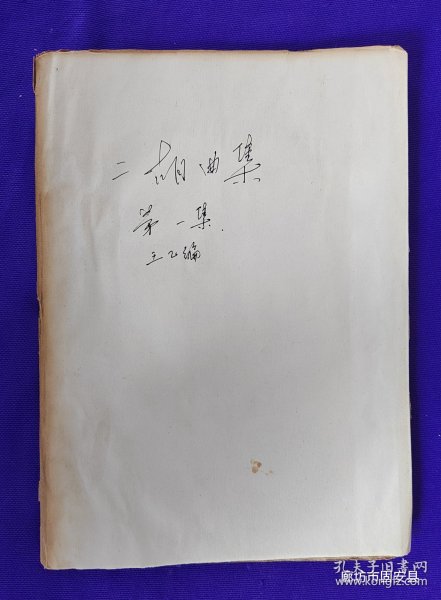 二胡曲集
第一集.
王乙编
孔夫子旧书网
廊坊市固安县